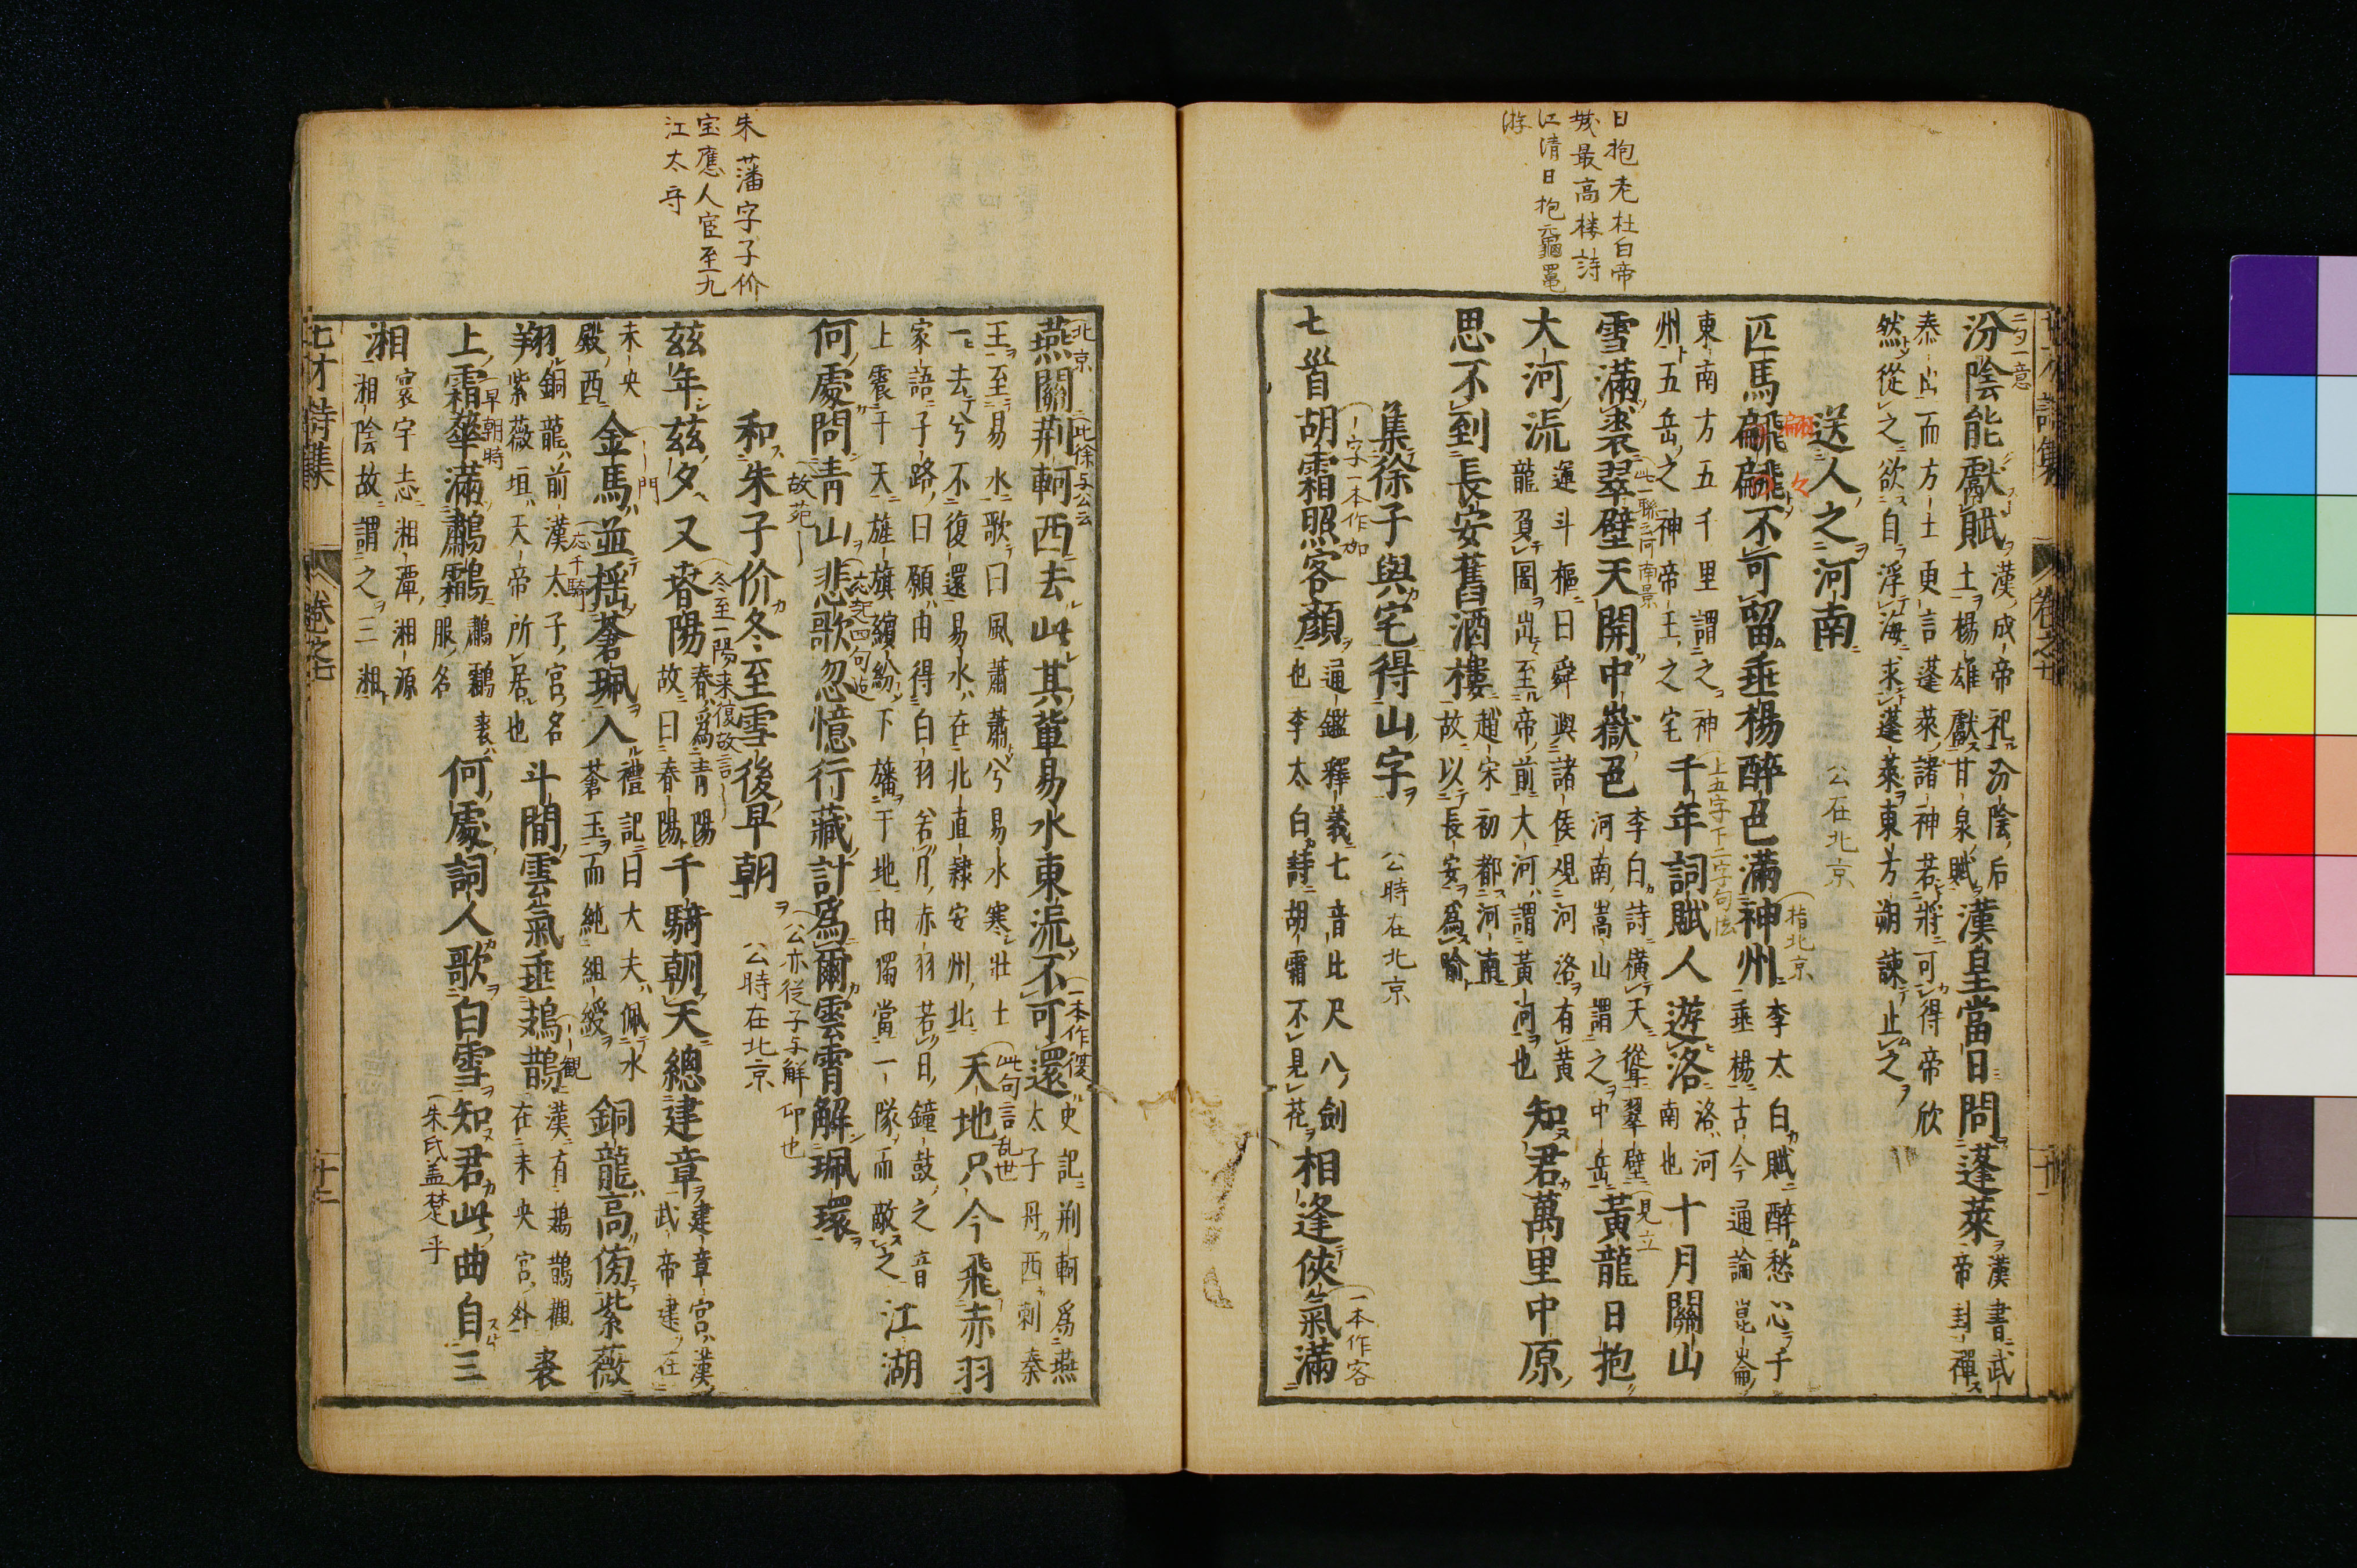 日抱老杜白帝
城最高楼詩
江清日抱黿鼉
游
汾陰能獻賦
漢成帝祀汾陰后
土楊雄獻甘泉賦
漢皇當日問蓬萊
漢書武帝封禪
泰山而方士更言蓬萊諸神若將可得帝欣
然從之欲自浮海求蓬萊東方朔諫止之
送人之河南
公在北京
匹馬翩翩不可留垂楊醉色滿神州
指北京
李太白賦醉愁心于
垂楊古今通論崑崙
東南方五千里謂之神
州五岳之神帝王之宅
千年詞賦人遊洛
洛河
南也
十月關山
上五字下二字句法
雪滿裘翠壁天開中嶽色
此一聯河南景
李白詩橫天聳翠壁
河南嵩山謂之中岳
黃龍日抱
見立
大河流
運斗樞曰舜與諸侯觀河洛有黃
龍負圖出至帝前大河謂黃河也
知君萬里中原
思不到長安舊酒樓
趙宋初都河南
故以長安爲喻
集徐子與宅得山字
公時在北京
七首胡霜照客顏
字一本作匕
通鑑釋義七音比尺八劍
也李太白詩胡霜不見花
相逢俠氣滿
一本作客
朱藩字子价
宝應人宦至九
江太守
燕關荊軻西去此其輩易水東流不可還
北京
此徐与公云
一本作復
史記荊軻爲燕
太子丹西刺秦
王至易水歌曰風蕭蕭兮易水寒壯士
一去兮不復還易水在北直隸安州北
天地只今飛赤羽
此句言乱世
家語子路曰願由得白羽若月赤羽若日鐘鼓之音
上震于天旌旗繽紛下旛于地由獨當一隊而敵之
江湖
何處問青山悲歌忽憶行藏計爲爾雲霄解珮環
故苑
応起四句
公亦從子与解印也
和朱子价冬至雪後早朝
公時在北京
茲年茲夕又春陽
冬至一陽来復故言
春爲青陽
故曰春陽
千騎朝天總建章
建章宮漢
武帝建在
未央
殿西
金馬並揺蒼珮入
門
応千騎
禮記曰大夫佩水
蒼玉而純組綬
銅龍高傍紫薇
翔
銅龍前漢太子宮名
紫薇垣天帝所居也
斗間雲氣垂鳷鵲
観
漢有鳷鵲觀
在未央宮外
裘
上霜華滿鷫鸘
早朝時
鷫鸘裘
服名
何處詞人歌白雪知君此曲自三
朱氏盖楚乎
湘
寰宇志湘潭湘源
湘陰故謂之三湘
七才詩集
卷之七
十二